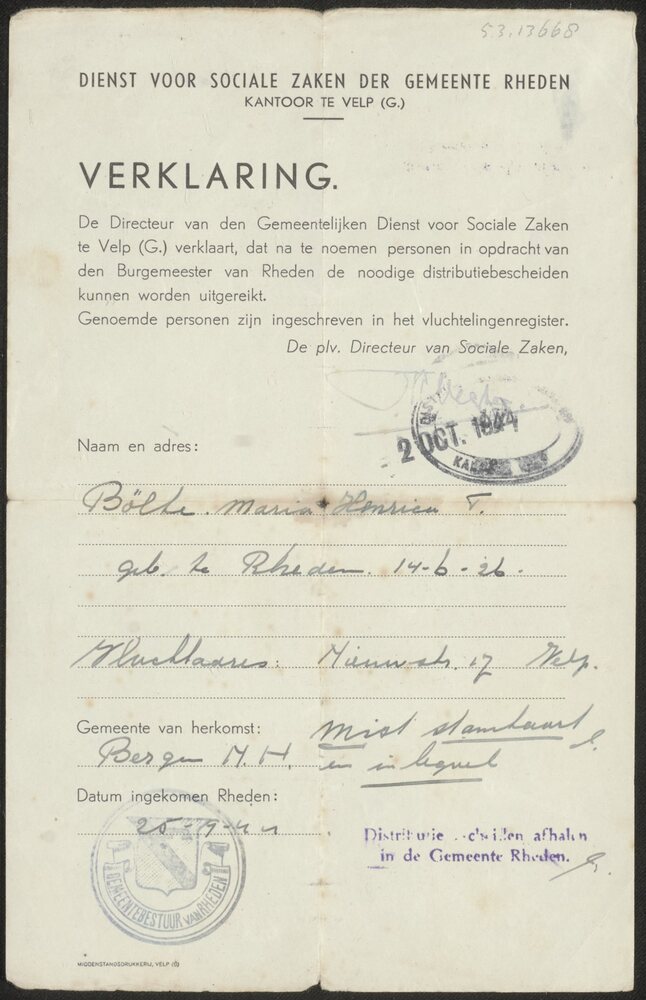 53.13668
DIENST VOOR SOCIALE ZAKEN DER GEMEENTE RHEDEN
KANTOOR TE VELP (G.)
VERKLARING.
De Directeur van den Gemeentelijken Dienst voor Sociale Zaken
te Velp (G.) verklaart, dat na te noemen personen in opdracht van
den Burgemeester van Rheden de noodige distributiebescheiden
kunnen worden uitgereikt.
Genoemde personen zijn ingeschreven in het vluchtelingenregister.
De plv. Directeur van Sociale Zaken,
2 OCT. 1944
Naam en adres:
Bölte. Maria Henrica T.
geb. te Rheden. 14-6-26.
Vluchtadres: Nieuwstr. 17 Velp.
Gemeente van herkomst:
Bergen N.H.
Mist stamkaart
en inlegvel
Datum ingekomen Rheden:
25-9-44
GEMEENTEBESTUUR VAN RHEDEN
Distributie afhalen
in de Gemeente Rheden.
MIDDENSTANDSDRUKKERIJ, VELP (G)